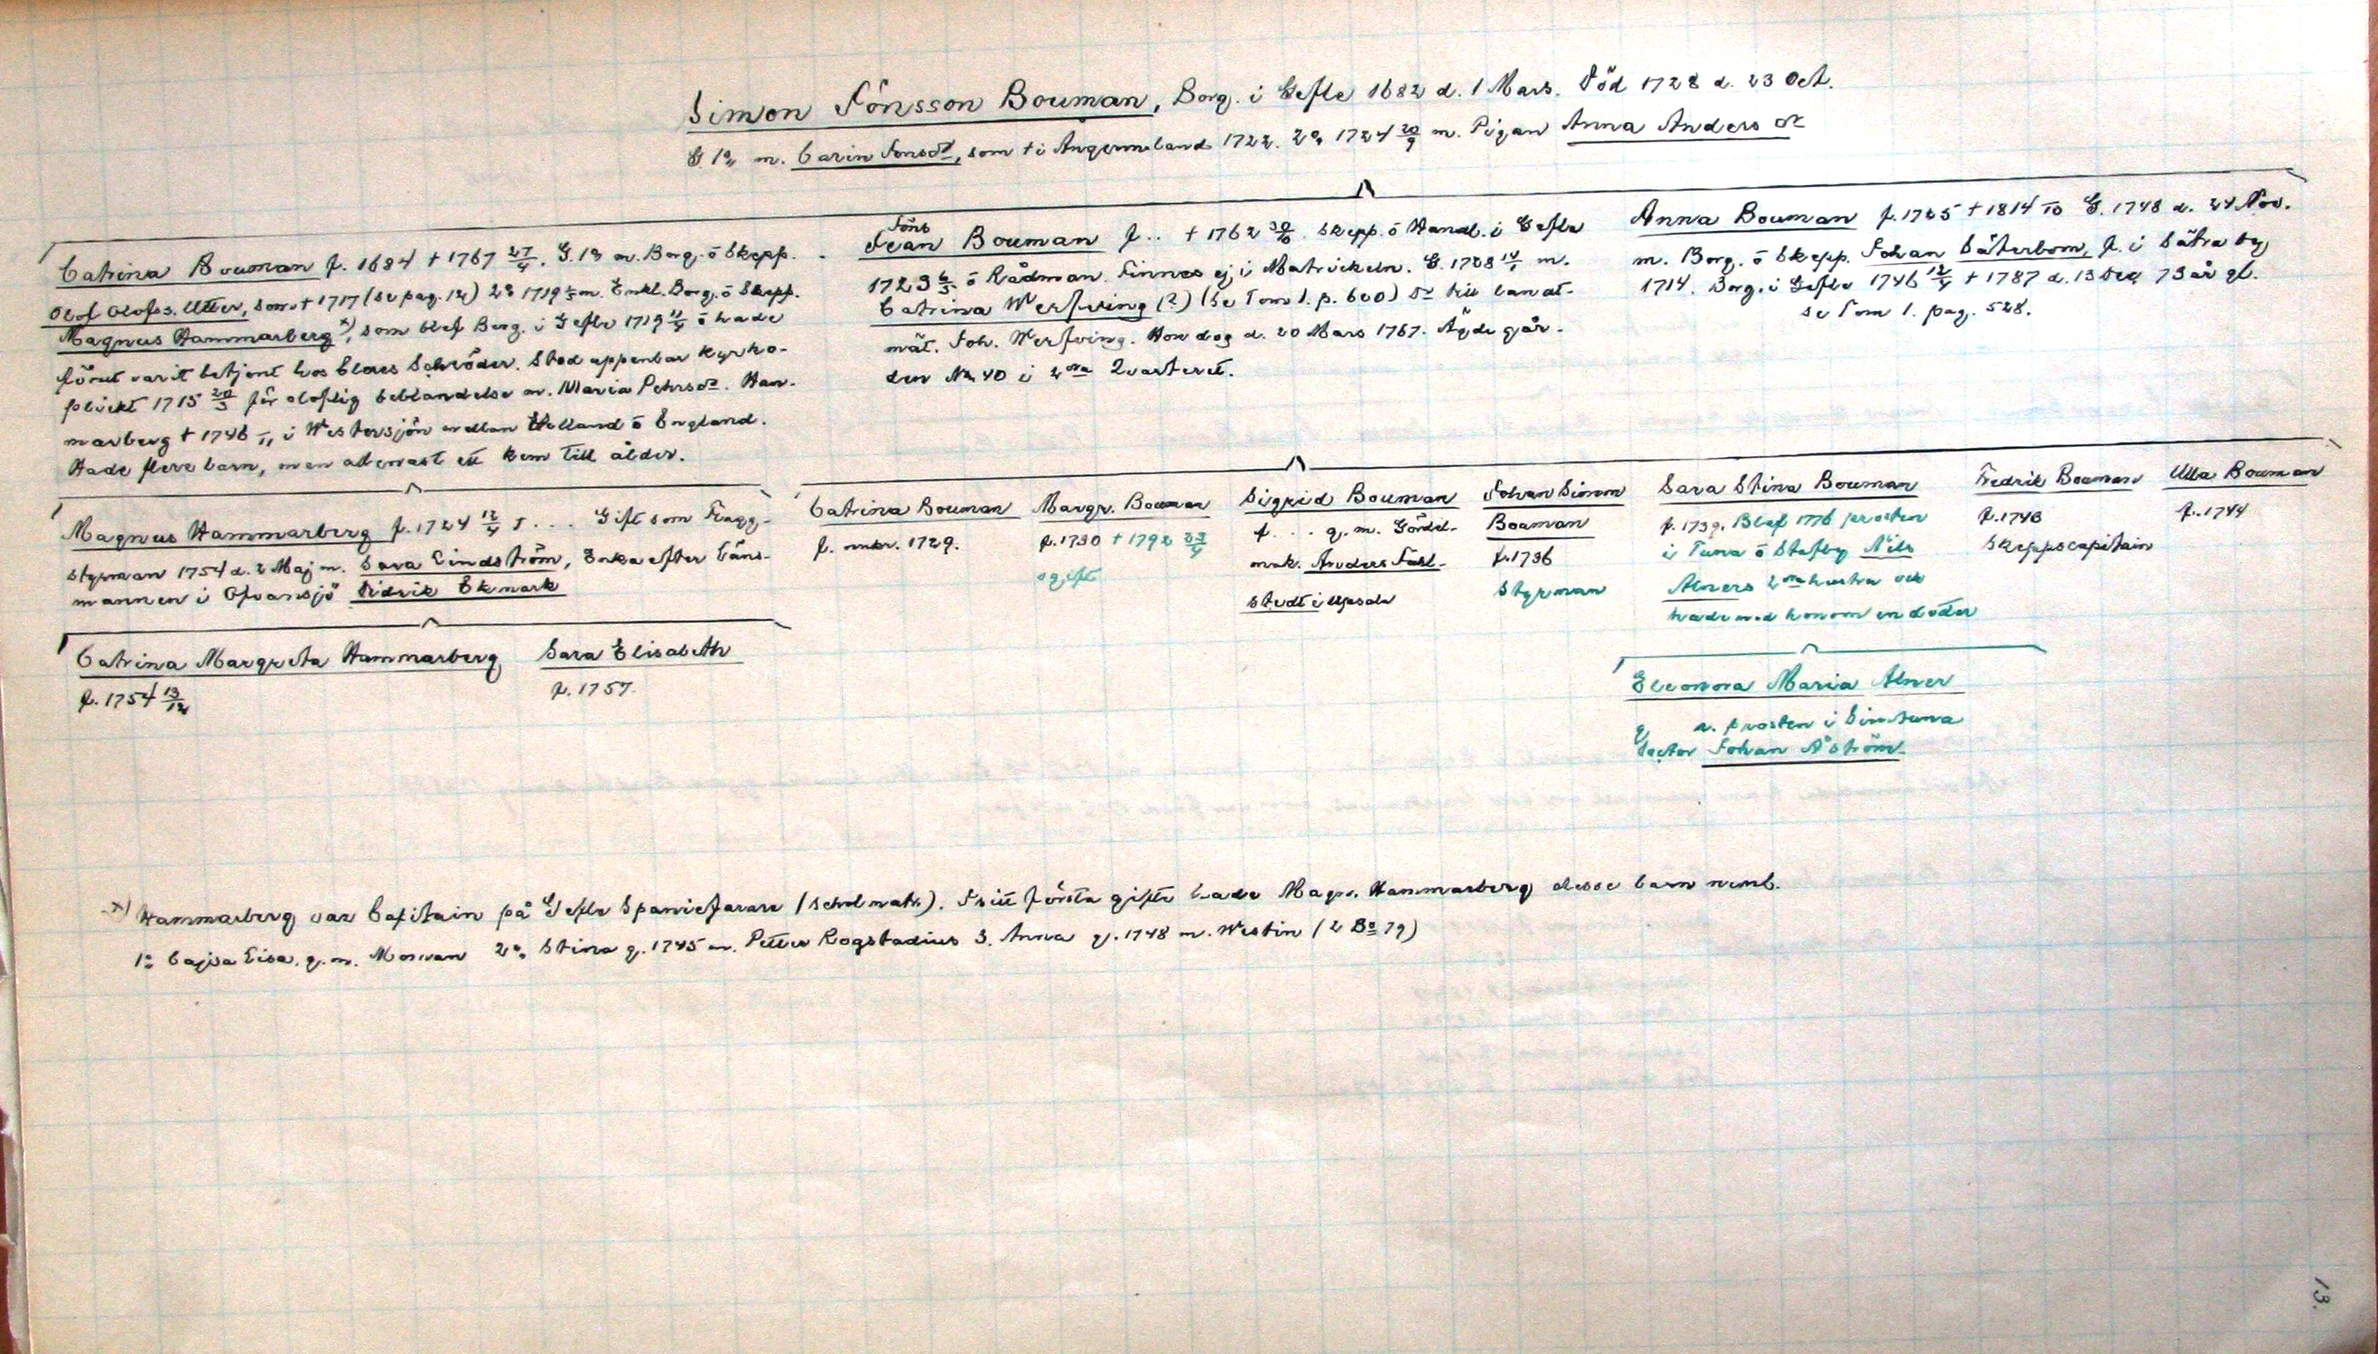 Simon Jönsson Bouman, Borg. i Gefle 1682 d. 1 Mars. Död 1728 d. 23 Oct.
G. 1º m. Carin Jonsdr, som † i Ångermeland 1722. 2º 1724 20/9 m. Pigan Anna Andersdr
Catrina Bouman f. 1684 † 1767 27/4. G. 1º m. Borg. o Skepp.
Olof Olofss. Utter, som † 1717 (se pag. 12) 2º 1719 m. Enkl. Borg. o Skepp.
Magnus Hammarberg x), som blef Borg. i Gefle 1719 o hade
förut varit betjent hos Claes Schröder. Stod uppenbar kyrko-
plickt 1715 20/3 för oloflig beblandelse m. Maria Pehrsdr. Ham-
marberg † 1746 i Westersjön mellan Holland o England.
Hade flere barn, men allenast ett kom till ålder.
Jöns
Jean Bouman f .. † 1762 30/10. Skepp. o Handl. i Gefle
1723 o Rådman. Finnes ej i Matrickeln. G. 1728 m.
Catrina Werfving (?) (Se Tom 1. p. 600) Dr till
mät. Joh. Werfving. Hon dog d. 20 Mars 1767. Ägde går-
den No 40 i 2dra Qvarteret.
Anna Bouman f. 1725 † 1814 G. 1748 d. 24 Nov.
m. Borg. o Skepp. Johan Säterbom, f. i Sätra by
1714. Borg. i Gefle 1746 12/4 † 1787 d. 13 Dec 73 år gl.
se Tom 1. pag. 528.
Magnus Hammarberg f. 1724 12/4 † ... Gift som Flagg-
styrman 1754 d. 2 Maj m. Sara Lindström, Enka efter Läns-
mannen i Ofvansjö Didrik Ekmark
Catrina Margreta Hammarberg
f. 1754 13/12
Sara Elisabeth
f. 1757.
Catrina Bouman
f. 1729.
Margr. Bouman
f. 1730 † 1792
ogift
Sigrid Bouman
f. ... g. m. Gördel-
mak. Anders Fahl-
stedt i Upsala
Johan Simon
Bouman
f. 1736
Styrman
Sara Stina Bouman
f. 1739. Blef 1776 prosten
i Tuna o Stafby Nils
Alners 2dra hustru och
hade med honom en doter
Fredrik Bouman
f. 1740
Skeppscapitain
Ulla Bouman
f. 1744
Eleonora Maria Alner
g m. prosten i Simtuna
Doctor Johan Åström
x) Hammarberg var Capitain på Gefle Spaniefarare (Scholmatr.). I sitt första gifte hade Magn. Hammarberg desse barn neml.
1º Cajsa Lisa, g. m. Morvan 2º Stina g. 1745 m. Petter Rogstadius 3. Anna g. 1748 m. Westin (2 Bo 79)
13.